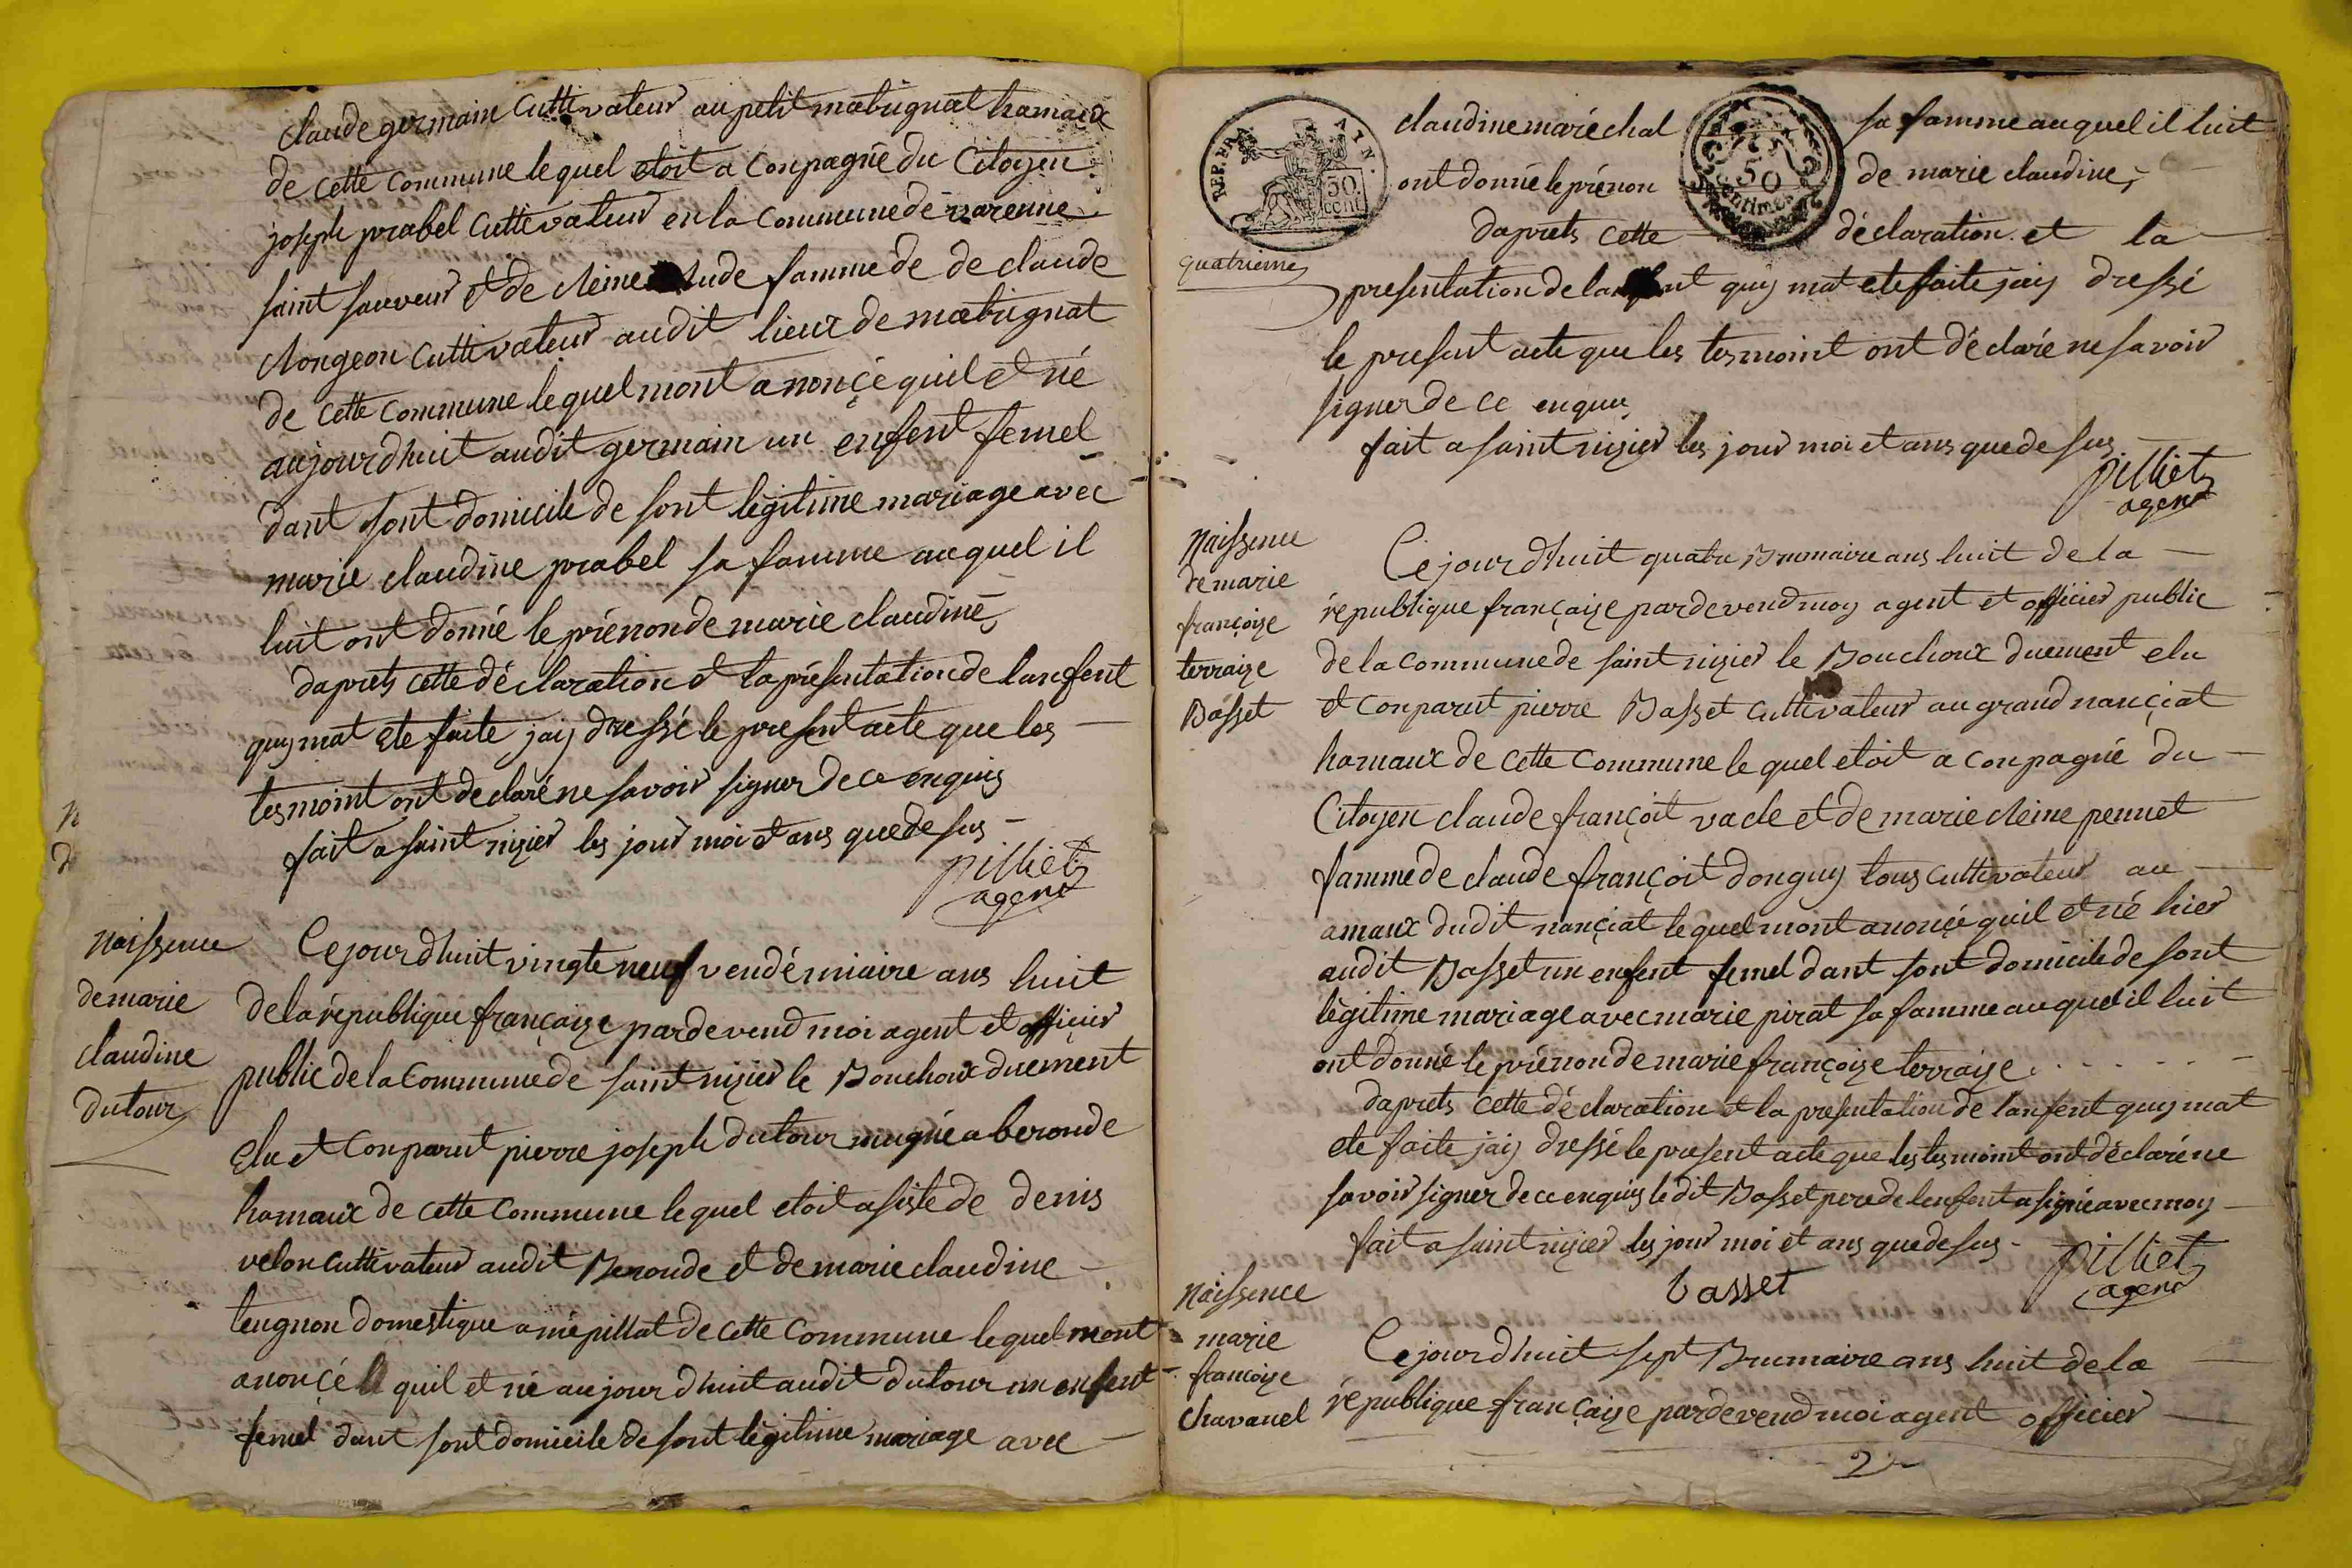 claude germain Cultivateur au petit matrignat hamaux
de cette commune le quel etoit a conpagné du Citoyen
joseph prabel Cultivateur en la commune de varenne
saint sauveur et de Reine lude famme de de claude
clongeon Cultivateur audit lieux de matrignat
de cette commune lequel mont anonçé quil et né
aujourdhuit audit germain un enfent femel
dant sont domicile de sont légitime mariage avec
marie claudine prabel sa famme auquel il
luit ont donné le prénon de marie claudine
daprets cette déclaration et la présentation de lanfent
quy mat ete faite jaiy dressé le present acte que les
tesmoint ont declaré ne savoir signer de ce enquis
fait a saint nizier les jour moi et ans que de sus
pilliet
agent
Naissence
de marie
claudine
dutour
Ce jourdhuit vingte neuf vendémiaire ans huit
de la république françaize pardevend moi agent et officier
public de la commune de saint nizier le Bouchoux duement
Elu et Conparut pierre joseph dutour mugné a beronde
hamaux de cette commune le quel etoit asisté de denis
velon cultivateur audit Beronde et de marie claudine
teugnon domestique a mépillat de cette commune lequel mont
anonçé quil et né aujourdhuit audit dutour un enfent
femel dant sont domicile de sont légitime mariage avec
REP. FRA
50 cent
quatrieme
50
Centimes
claudine maréchal sa famme auquel il luit
ont donné le prénon de marie claudine
daprets cette déclaration et la
presentation de lanfent quy mat ete faite jaiy dressé
le present acte que les tesmoint ont déclaré ne savoir
signer de ce enquis
fait a saint nizier les jour moi et ans que de sus
pilliet
agent
Naissence
de marie
françoize
terraize
Basset
Ce jourdhuit quatre Brumaire ans huit de la
république françaize pardevend moy agent et officier public
de la commune de saint nizier le Bouchoux duement elu
et conparut pierre Basset cultivateur au grand nançiat
hamaux de cette commune le quel etoit a conpagné du
Citoyen claude françoit vacle et de marie Reine pennet
famme de claude françoit donguy tous cultivateur au
amaux dudit nançiat lequel mont anonçé quil et né hier
audit Basset un enfent femel dant sont domicile de sont
légitime mariage avec marie pirat sa famme auquel il luit
ont donné le prénon de marie françoize terraize
daprets cette déclaration et la presentation de lanfent quy mat
ete faite jaiy dressé le present acte que les tesmoint ont déclaré ne
savoir signer de ce enquis le dit Basset pere de lenfent a signé avec moy
fait a saint nizier les jour moi et ans que de sus
basset
pilliet
agent
Naissence
marie
francoize
chavanel
Ce jourdhuit sept Brumaire ans huit de la
république françaize pardevend moi agent officier
2